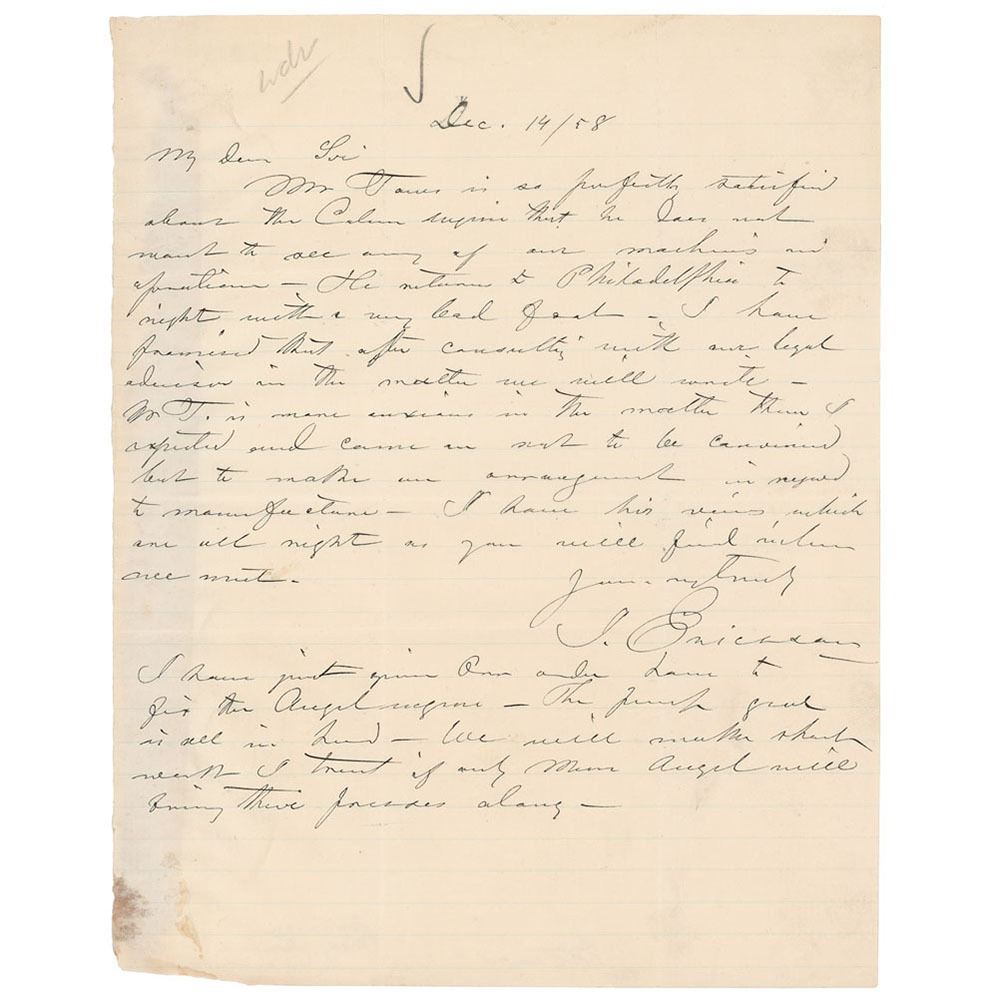 Dec. 14/58
My Dear Sir
Mr Tower is so perfectly satisfied
about the Caloric engine that he does not
want to see any of our machines in
operation — He returns to Philadelphia to
night with a very bad coat — I have
promised that after consulting with our legal
advisor in the matter we will write —
Mr T. is more anxious in the matter than I
expected and came on not to be convinced
but to make an arrangement in regard
to manufacture — I have his views which
are all right as you will find when
we meet.
Yours very truly
J. Ericsson
I have just given an order here to
fix the Angel engine — The pump gear
is all in hand — We will make short
work I trust if only Messrs Angel will
bring their presses along —